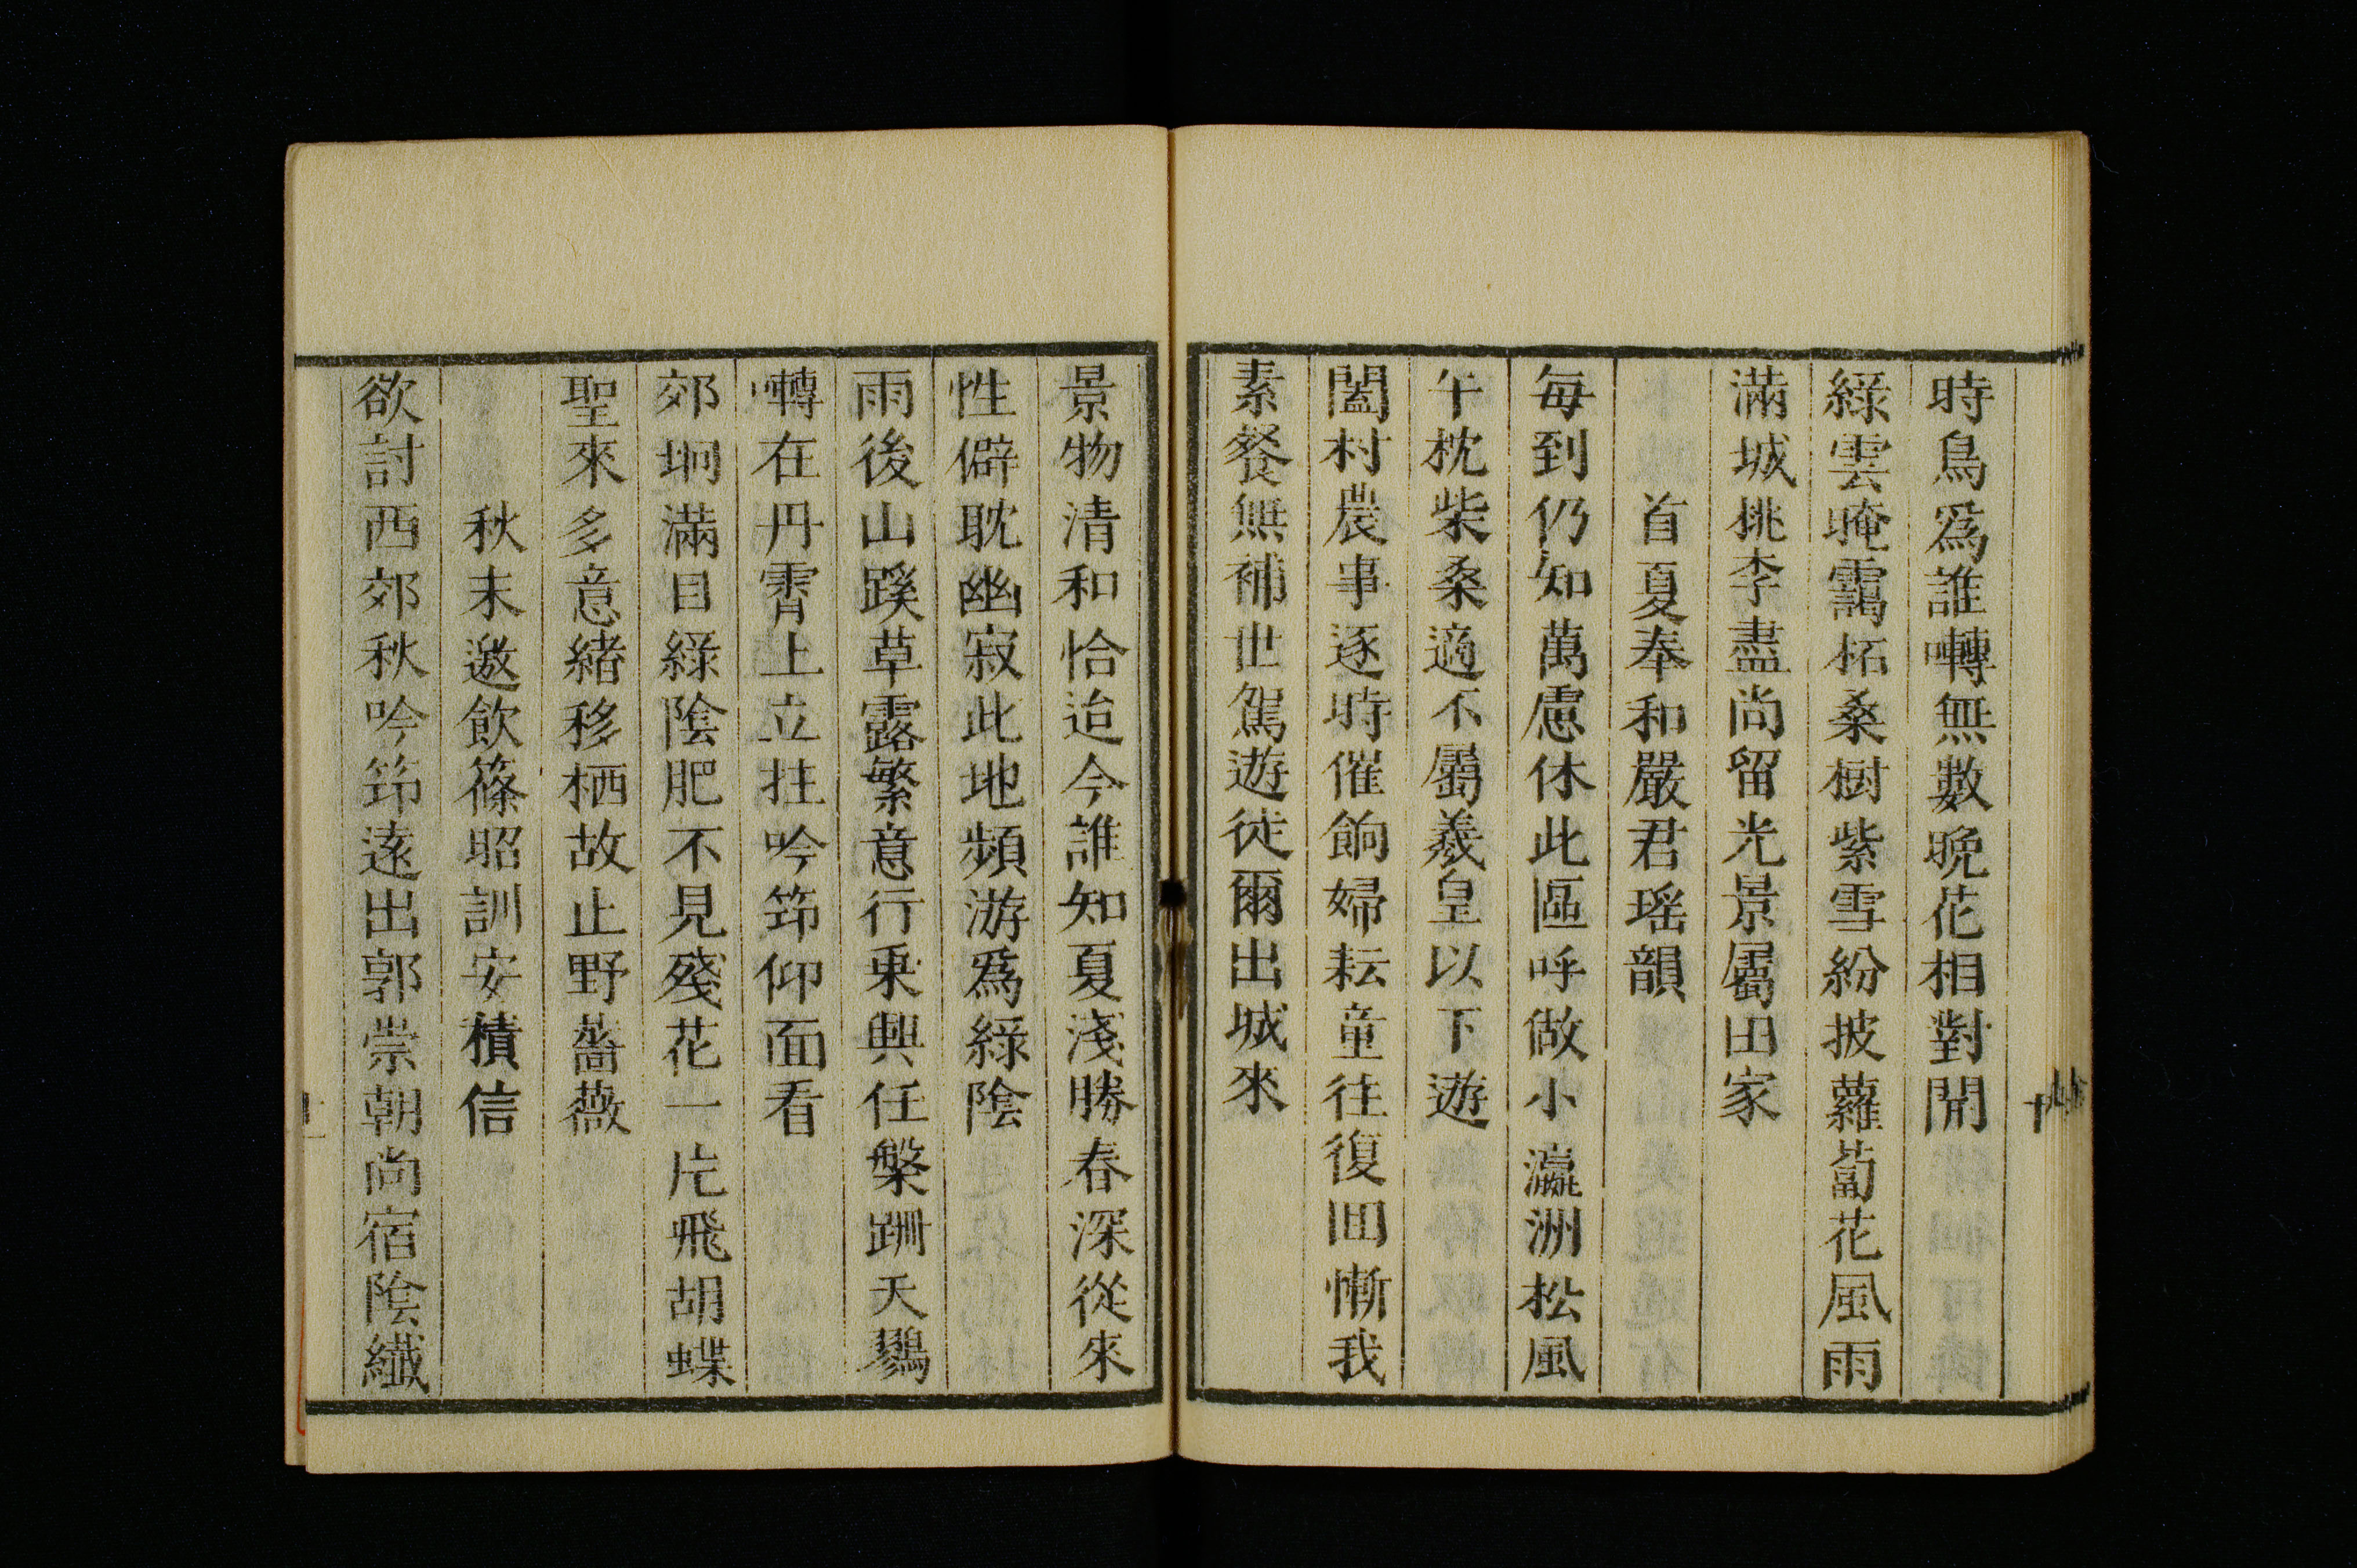 時鳥爲誰囀無數晩花相對開
綠雲晻靄柘桑樹紫雪紛披蘿蔔花風雨
滿城桃李盡尚留光景屬田家
首夏奉和嚴君瑤韻
每到仍知萬慮休此區呼做小瀛洲松風
午枕柴桑適不屬羲皇以下遊
闔村農事逐時催餉婦耘童往復回慚我
素餐無補世駕遊徒爾出城來
景物清和恰迨今誰知夏淺勝春深從來
性僻耽幽寂此地頻游爲綠陰
雨後山蹊草露繁意行乘興任槃跚天鷚
囀在丹霄上立拄吟筇仰面看
郊坰滿目綠陰肥不見殘花一片飛胡蝶
聖來多意緒移栖故止野薔薇
秋末邀飲篠昭訓安積信
欲討西郊秋吟筇遠出郭崇朝尚宿陰纖